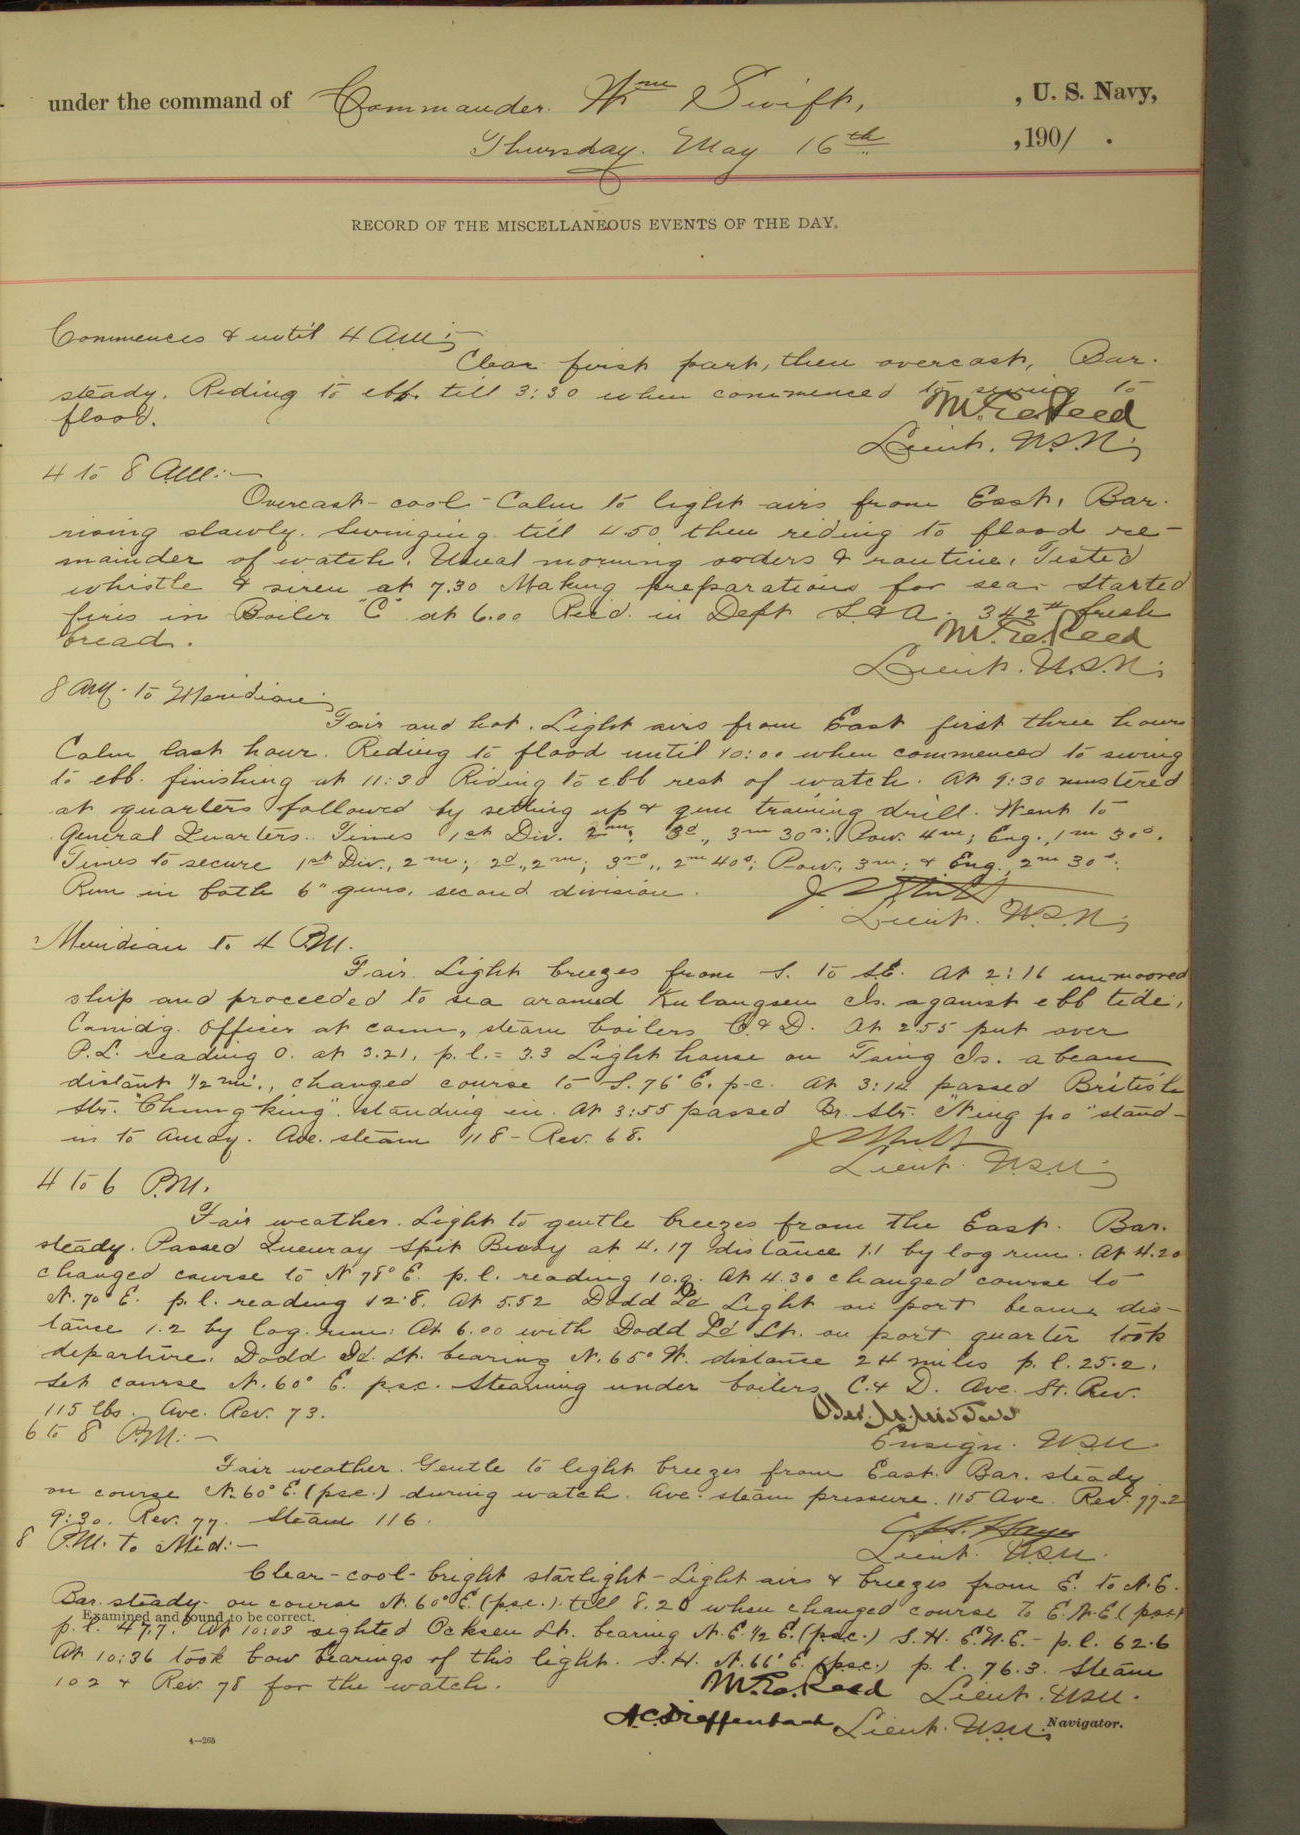 under the command of Commander Wm Swift, , U. S. Navy,
Thursday May 16th , 1901 .
RECORD OF THE MISCELLANEOUS EVENTS OF THE DAY.
Commences & until 4 AM:-
Clear first part, then overcast, Bar.
steady. Riding to ebb till 3:30 when commenced to swing to
flood.
Reed
Lieut. U.S.N.
4 to 8 AM:-
Overcast - cool - Calm to light airs from East, Bar.
rising slowly. Swinging till 4 50 then riding to flood re-
mainder of watch. Usual morning orders & routine. Tested
whistle & siren at 7.30 Making preparations for sea. Started
fires in Boiler "C" at 6.00 Rec'd. in Dept S. & A. 342# fresh
bread.
Reed
Lieut. U.S.N.
8 AM. to Meridian:
Fair and hot. Light airs from East first three hours
Calm last hour. Riding to flood until 10:00 when commenced to swing
to ebb. finishing at 11:30 Riding to ebb rest of watch. At 9:30 mustered
at quarters followed by setting up & gun training drill. Went to
General Quarters. Times 1st Div. 2m; 3d, 3m 30s; Pow. 4m; Eng., 1m 30s.
Times to secure 1st Div., 2m; 2d, 2m; 3rd, 2m 40s; Pow., 3m; & Eng., 2m 30s.
Run in both 6" guns, second division.
Lieut. U.S.N.
Meridian to 4 PM.
Fair. Light breezes from S. to SE. At 2:16 unmoored
ship and proceeded to sea around Kulangseu Is. against ebb tide,
Comd'g. Officer at conn, steam boilers C. & D. At 2.55 put over
P.L. reading 0. at 3.21, p.l. = 3.3 Light house on Tsing Is. abeam
distant 1/2 mi., changed course to S. 76° E. p.c. At 3:14 passed British
Str. "Chungking" standing in. At 3:55 passed Br. Str. "Ning po" stand-
in to Amoy. Ave. steam 118 - Rev. 68.
Lieut. U.S.N.
4 to 6 P.M.
Fair weather. Light to gentle breezes from the East. Bar.
steady. Passed Spit Buoy at 4.17 distance 1.1 by log run. At 4.20
changed course to N 78° E. p.l. reading 10.9. At 4.30 changed course to
N. 70° E. p.l. reading 12.8. At 5.52 Dodd Id Light on port beam, dis-
tance 1.2 by log run. At 6.00 with Dodd Id Lt. on port quarter took
departure. Dodd Id. Lt. bearing N. 65° W. distance 2 4 miles p.l. 25.2.
Set course N. 60° E. psc. Steaming under boilers C. & D. Ave. St. Rev.
115 lbs. Ave. Rev. 73.
Ensign. U.S.N.
6 to 8 P.M:-
Fair weather. Gentle to light breezes from East. Bar. steady
on course N. 60° E. (psc.) during watch. Ave. steam pressure. 115 Ave. Rev. 77.2
9:30. Rev. 77. Steam 116.
Lieut. U.S.N.
8 P.M. to Mid:-
Clear - cool - bright starlight - Light airs & breezes from E. to N.E.
Bar. steady. on course N. 60° E. (psc.) till 8.20 when changed course to E.N.E. (psc)
Examined and found to be correct.
p.l. 47.7. At 10:03 sighted Ocksen Lt. bearing N.E. 1/2 E. (p.s.c.) S.H. E.N.E. - p.l. 62.6
At 10:36 took bow bearings of this light. S.H. N. 66° E. (psc.) p.l. 76.3. Steam
102 & Rev. 78 for the watch.
Reed Lieut. U.S.N.
A.C. Dieffenbach Lieut. U.S.N. Navigator.
4—265